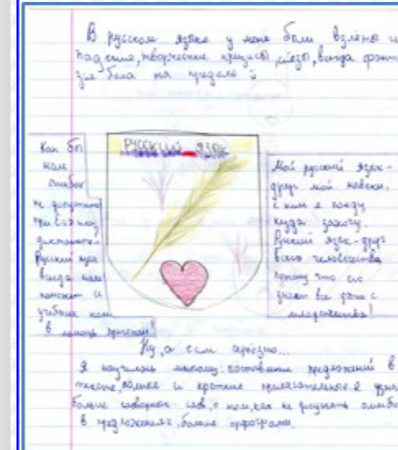 В русском языке у меня были взлёты и
падения, творческие кризисы, слёзы, всегда
была на пределе
РУССКИЙ ЯЗЫК
Как бы
нам
ошибок
не допустить
при
диктанте
Русский язык
всегда нам
поможет и
учебник нам
в помощь
Мой русский язык -
друг мой навеки,
с ним я пойду
куда захочу
Русский язык - друг
всего человечества
потому что его
знают все даже с
младенчества!
Ну, а если серьёзно...
Я научилась многому: составлять предложения в
тексте, полные и краткие прилагательные я
больше словарных слов, о том, как не допускать ошибок
в предложениях, больше орфограмм.